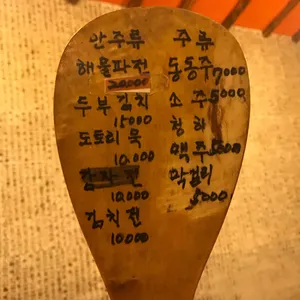 안주류
해물파전
20000
두부김치
15000
도토리묵
10,000
감자전
10,000
김치전
10000
주류
동동주 7000
소주 5000
청하
맥주 5000
막걸리
5000